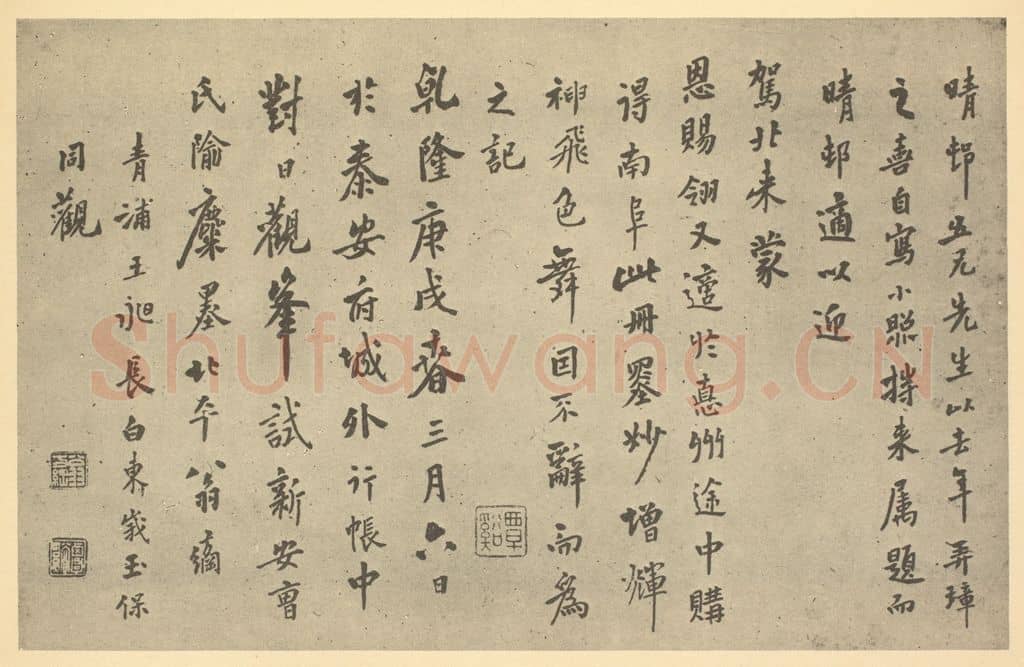 晴邨五兄先生以去年弄璋
之喜自寫小照持来属題而
晴邨適以迎
駕北来蒙
恩賜翎又遵於惪州途中購
得南阜此冊墨妙增輝
神飛色舞因不辭而為
之記
乾隆庚戌春三月六日
於泰安府城外行帳中
對日觀峯試新安曹
氏隃麋墨北平翁方綱
青浦王昶長白東嵗玉保
同觀
覃谿
Shufawang.CN